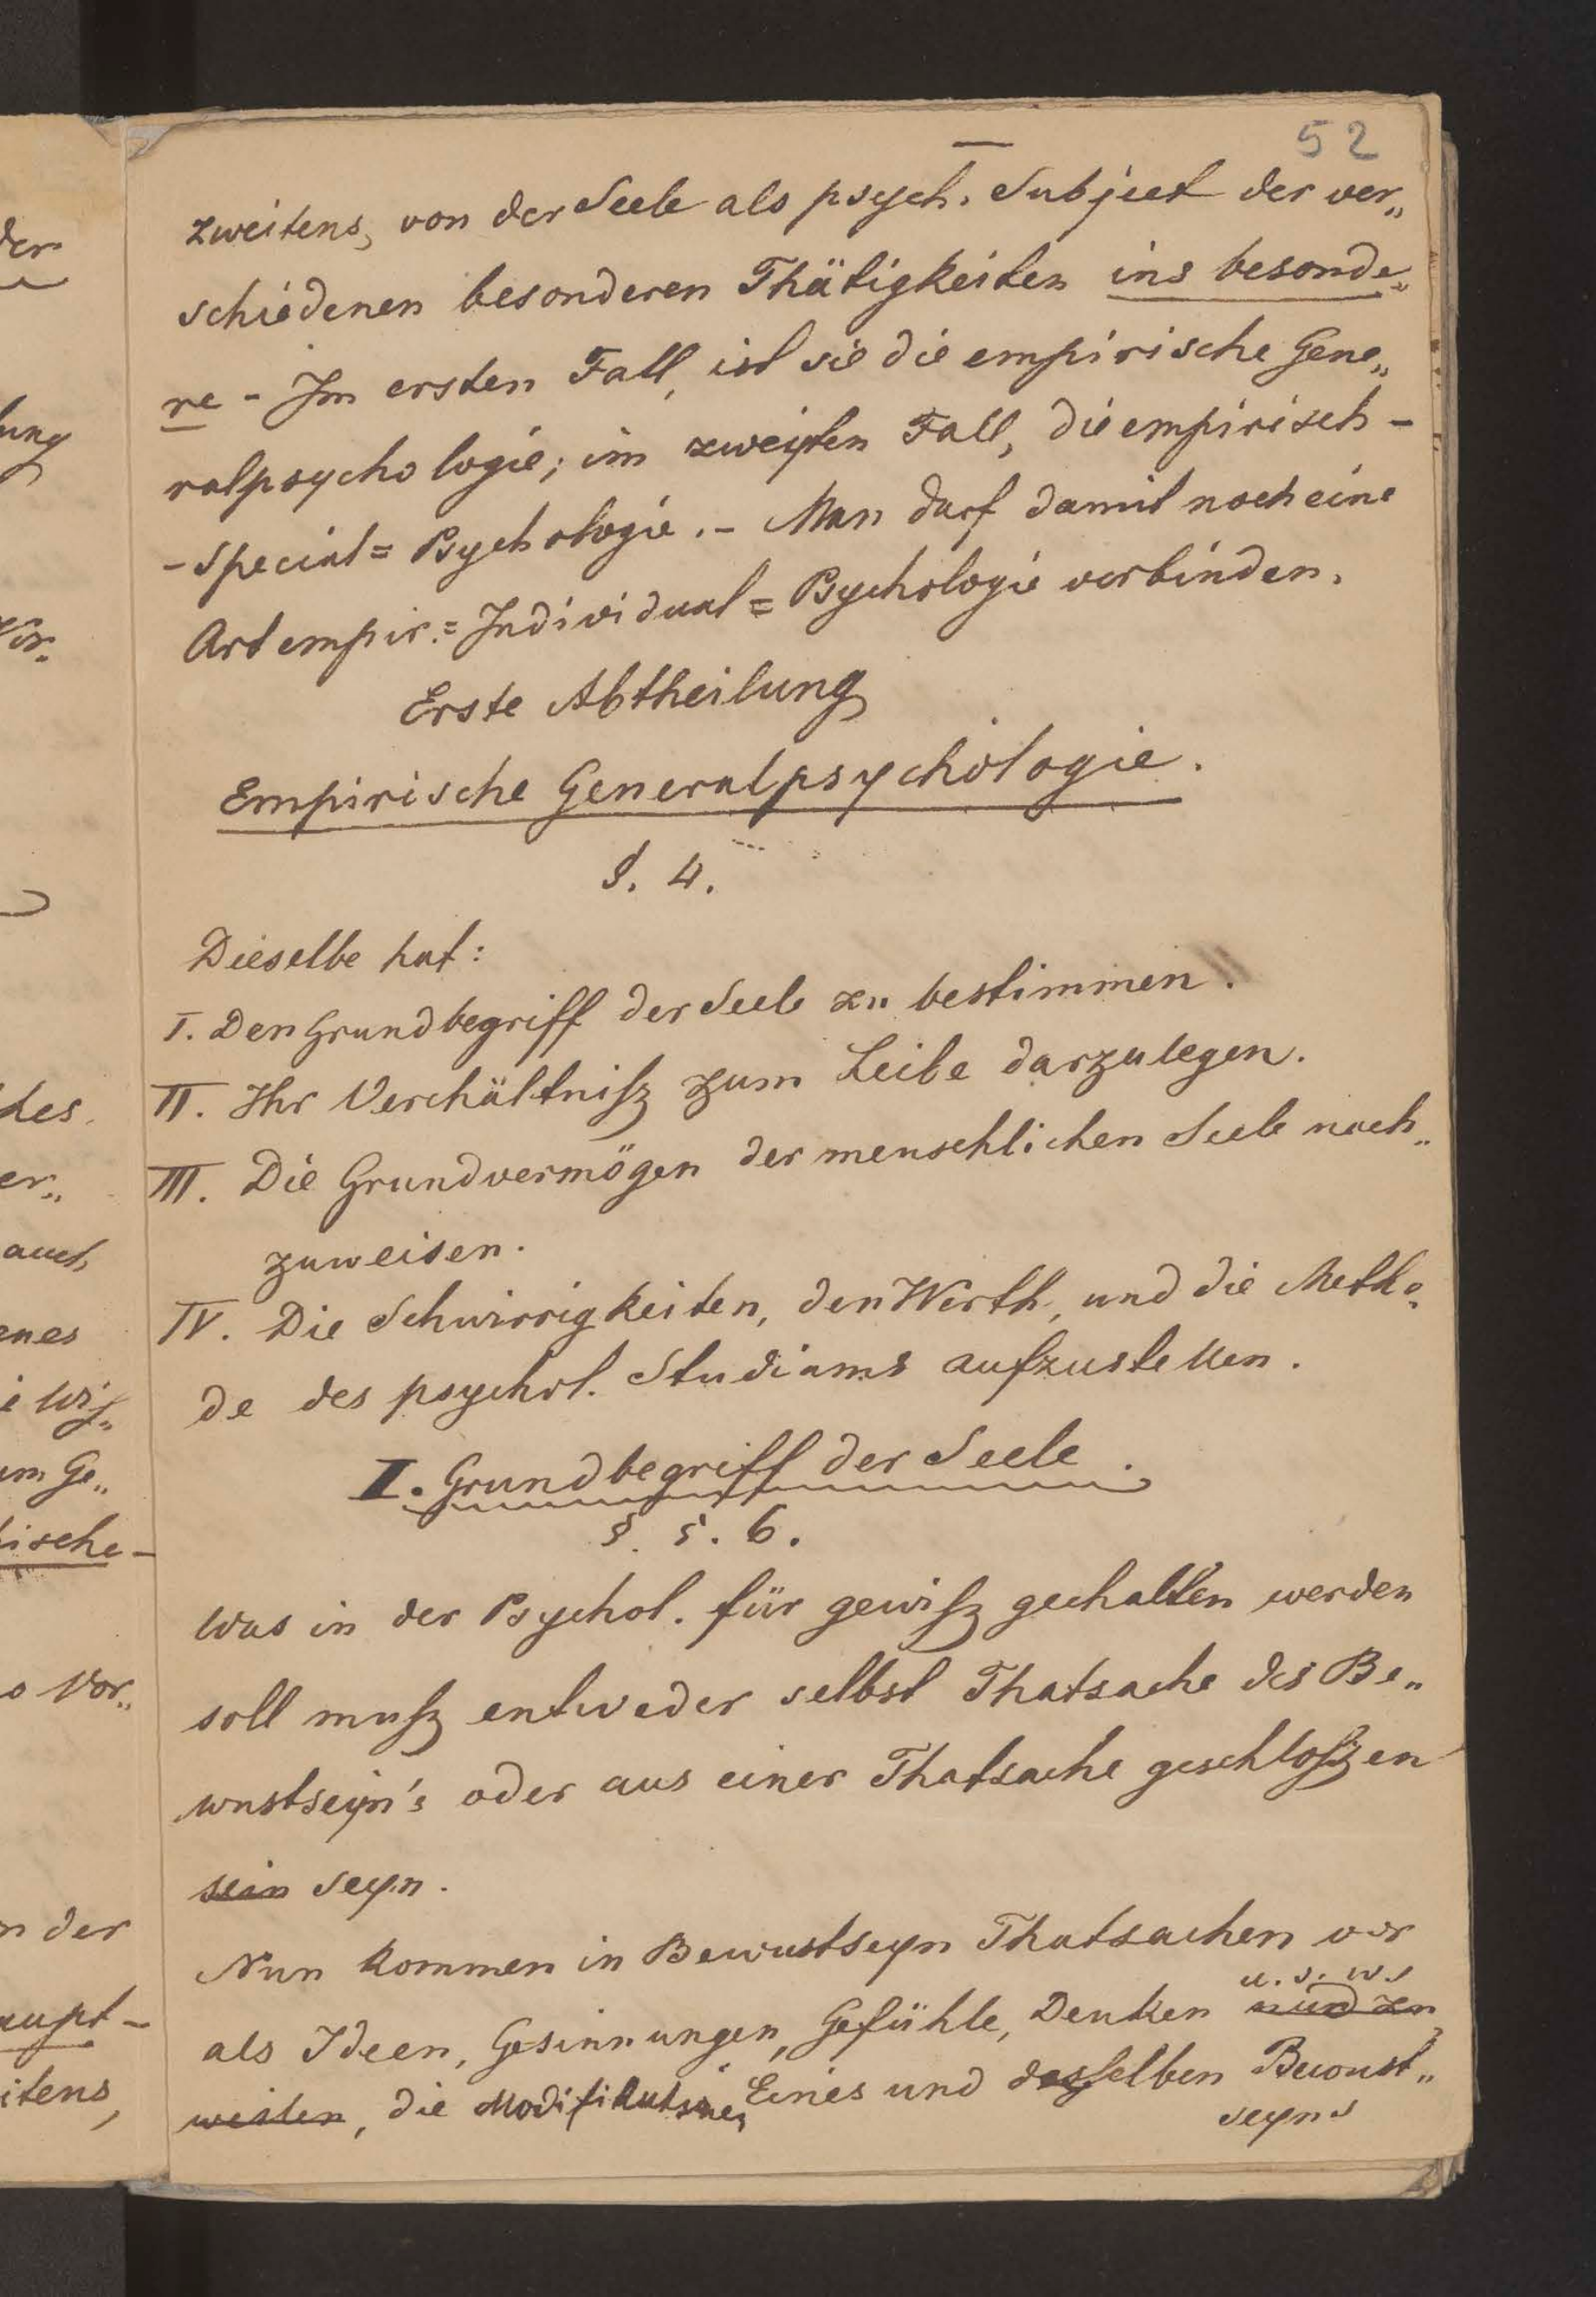 52
zweitens, von der Seele als psych. Subject der ver„
schiedenen besonderen Thätigkeiten ins besonde„
re - Im ersten Fall, ist sie die empirische Gene„
ralpsychologie; im zweyten Fall, die empirisch -
- Special = Psychologie. - Man darf damit noch eine
Art empir. = Individual = Psychologie verbinden.
Erste Abtheilung
Empirische Generalpsychologie.
§. 4.
Dieselbe hat:
I. Den Grundbegriff der Seele zu bestimmen.
II. Ihr Verchältniſz zum Leibe darzulegen.
III. Die Grundvermögen der menschlichen Seele nach„
zuweisen.
IV. Die Schwirrigkeiten, den Werth, und die Metho„
de des psychol. Studiums aufzustellen.
I. Grundbegriff der Seele.
§. 5. 6.
Was in der Psychol. für gewiſz gechalten werden
soll muſz entweder selbst Thatsache des Be„
wustseyn's oder aus einer Thatsache geschloſzen
sein seyn.
Nun kommen in Bewustseyn Thatsachen vor
u. s. w.
als Ideen, Gesinnungen, Gefühle, Denken und zu
weilen, die Modifikationen Eines und desselben Bewust„
seyns
der
ung
Vor.
des
er„
auch
enes
Wiſ„
um Ge„
ische -
Vor„
n der
aupt -
itens,